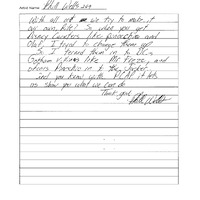 Artist Name: Phill Wells
With all art we try to make it
our own, Rite? So when you get
Disney Caracters like Pinocchio and
Olaf, I tryed to change them up?
So I turned them in to DC,
Gotham villans like Mr Freeze, and
others Pinochio in to the Joker
and you know with it lets
us show you what we can do
Thank god
Phill Wells